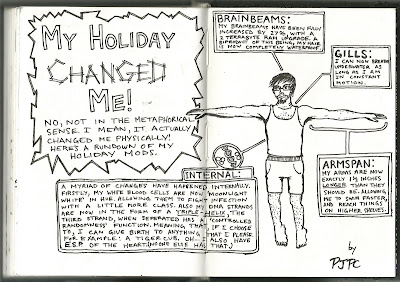 MY HOLIDAY
CHANGED
ME!
NO, NOT IN THE METAPHORICAL
SENSE. I MEAN, IT ACTUALLY
CHANGED ME PHYSICALLY!
HERE'S A RUNDOWN OF MY
HOLIDAY MODS.
BRAINBEAMS:
MY BRAINBEAMS HAVE BEEN
INCREASED BY 27%, WITH A
2 TERRABYTE RAM UPGRADE. A
BIPRODUCT OF THIS BEING, MY HAIR
IS NOW COMPLETELY WATERPROOF.
GILLS:
I CAN NOW BREATH
UNDERWATER AS
LONG AS I AM
IN CONSTANT
MOTION.
ARMSPAN:
MY ARMS ARE NOW
EXACTLY 1¾ INCHES
LONGER THAN THEY
SHOULD BE. ALLOWING
ME TO SWIM FASTER,
AND REACH THINGS
ON HIGHER SHELVES.
INTERNAL:
A MYRIAD OF CHANGES HAVE HAPPENED INTERNALLY.
FIRSTLY, MY WHITE BLOOD CELLS ARE NOW 'MOONLIGHT
WHITE' IN HUE. ALLOWING THEM TO FIGHT INFECTION
WITH A LITTLE MORE CLASS. ALSO MY DNA STRANDS
ARE NOW IN THE FORM OF A TRIPLE-HELIX, THE
THIRD STRAND, WHEN SEPERATED HAS A 'CONTROLLED
RANDOMNESS' FUNCTION. MEANING, THAT IF I CHOOSE
TO, I CAN GIVE BIRTH TO ANYTHING THAT I PLEASE.
FOR EXAMPLE: A TIGER CUB. OH- I ALSO HAVE
E.S.P. OF THE HEART (NO ONE ELSE HAS THAT.)
by
PJTC